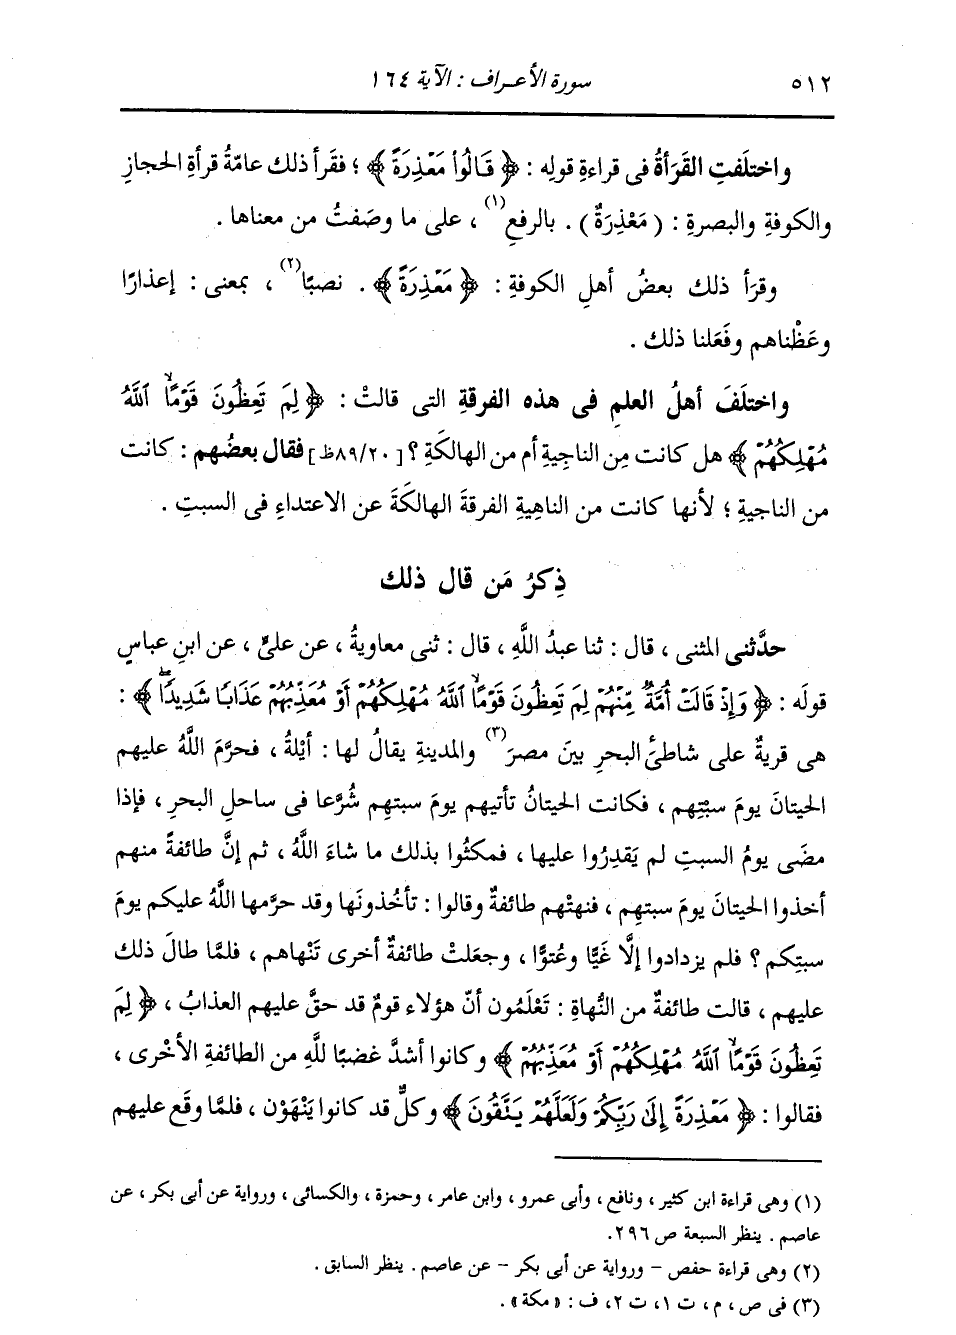 ٥١٢ سورة الأعراف : الآية ١٦٤
واختلَفتِ القَرَأةُ فى قراءةِ قولِه : ﴿ قَالُوا۟ مَعْذِرَةً ﴾ ؛ فقَرأ ذلك عامّةُ قرأةِ الحجازِ
والكوفةِ والبصرةِ : ( مَعْذِرَةٌ ) . بالرفعِ (١) ، على ما وصَفتُ من معناها .
وقرَأ ذلك بعضُ أهلِ الكوفةِ : ﴿ مَعْذِرَةً ﴾ . نصبًا (٢) ، بمعنى : إعذارًا
وعَظْناهم وفَعَلنا ذلك .
واختلَفَ أهلُ العلمِ فى هذه الفرقةِ التى قالتْ : ﴿ لِمَ تَعِظُونَ قَوْمًا ۙ ٱللَّهُ
مُهْلِكُهُمْ ﴾ هل كانت مِن الناجِيةِ أم من الهالكَةِ ؟ [ ٨٩/٢٠ظ ] فقال بعضُهم : كانت
من الناجيةِ ؛ لأنها كانت من الناهِيةِ الفرقةَ الهالكَةَ عن الاعتداءِ فى السبتِ .
ذِكرُ مَن قال ذلك
حدَّثنى المثنى ، قال : ثنا عبدُ اللَّهِ ، قال : ثنى معاويةُ ، عن علىٍّ ، عن ابنِ عباسٍ
قولَه : ﴿ وَإِذْ قَالَتْ أُمَّةٌ مِّنْهُمْ لِمَ تَعِظُونَ قَوْمًا ۙ ٱللَّهُ مُهْلِكُهُمْ أَوْ مُعَذِّبُهُمْ عَذَابًا شَدِيدًا ۖ ﴾ :
هى قريةٌ على شاطئِ البحرِ بينَ مصرَ (٣) والمدينةِ يقالُ لها : أيْلةُ ، فحرَّمَ اللَّهُ عليهم
الحيتانَ يومَ سبْتِهم ، فكانت الحيتانُ تأتيهم يومَ سبتِهم شُرَّعا فى ساحلِ البحرِ ، فإذا
مضَى يومُ السبتِ لم يَقدِرُوا عليها ، فمكثُوا بذلك ما شاءَ اللَّهُ ، ثم إنَّ طائفةً منهم
أخذوا الحيتانَ يومَ سبتِهم ، فنهتْهم طائفةٌ وقالوا : تأخُذونَها وقد حرَّمها اللَّهُ عليكم يومَ
سبتِكم ؟ فلم يزدادوا إلَّا غَيًّا وعُتوًّا ، وجعَلتْ طائفةٌ أخرى تَنْهاهم ، فلمَّا طالَ ذلك
عليهم ، قالت طائفةٌ من النُّهاةِ : تَعْلَمُون أنّ هؤلاء قومٌ قد حقَّ عليهم العذابُ ، ﴿ لِمَ
تَعِظُونَ قَوْمًا ۙ ٱللَّهُ مُهْلِكُهُمْ أَوْ مُعَذِّبُهُمْ ﴾ وكانوا أشدَّ غضبًا للَّهِ من الطائفةِ الأخْرى ،
فقالوا : ﴿ مَعْذِرَةً إِلَىٰ رَبِّكُمْ وَلَعَلَّهُمْ يَتَّقُونَ ﴾ وكلٌّ قد كانوا يَنْهَوْن ، فلمَّا وقَع عليهم
(١) وهى قراءة ابن كثير ، ونافع ، وأبى عمرو ، وابن عامر ، وحمزة ، والكسائى ، ورواية عن أبى بكر ، عن
عاصم . ينظر السبعة ص ٢٩٦.
(٢) وهى قراءة حفص - ورواية عن أبى بكر - عن عاصم . ينظر السابق .
(٣) فى ص ، م ، ت ١، ت ٢، ف : « مكة » .